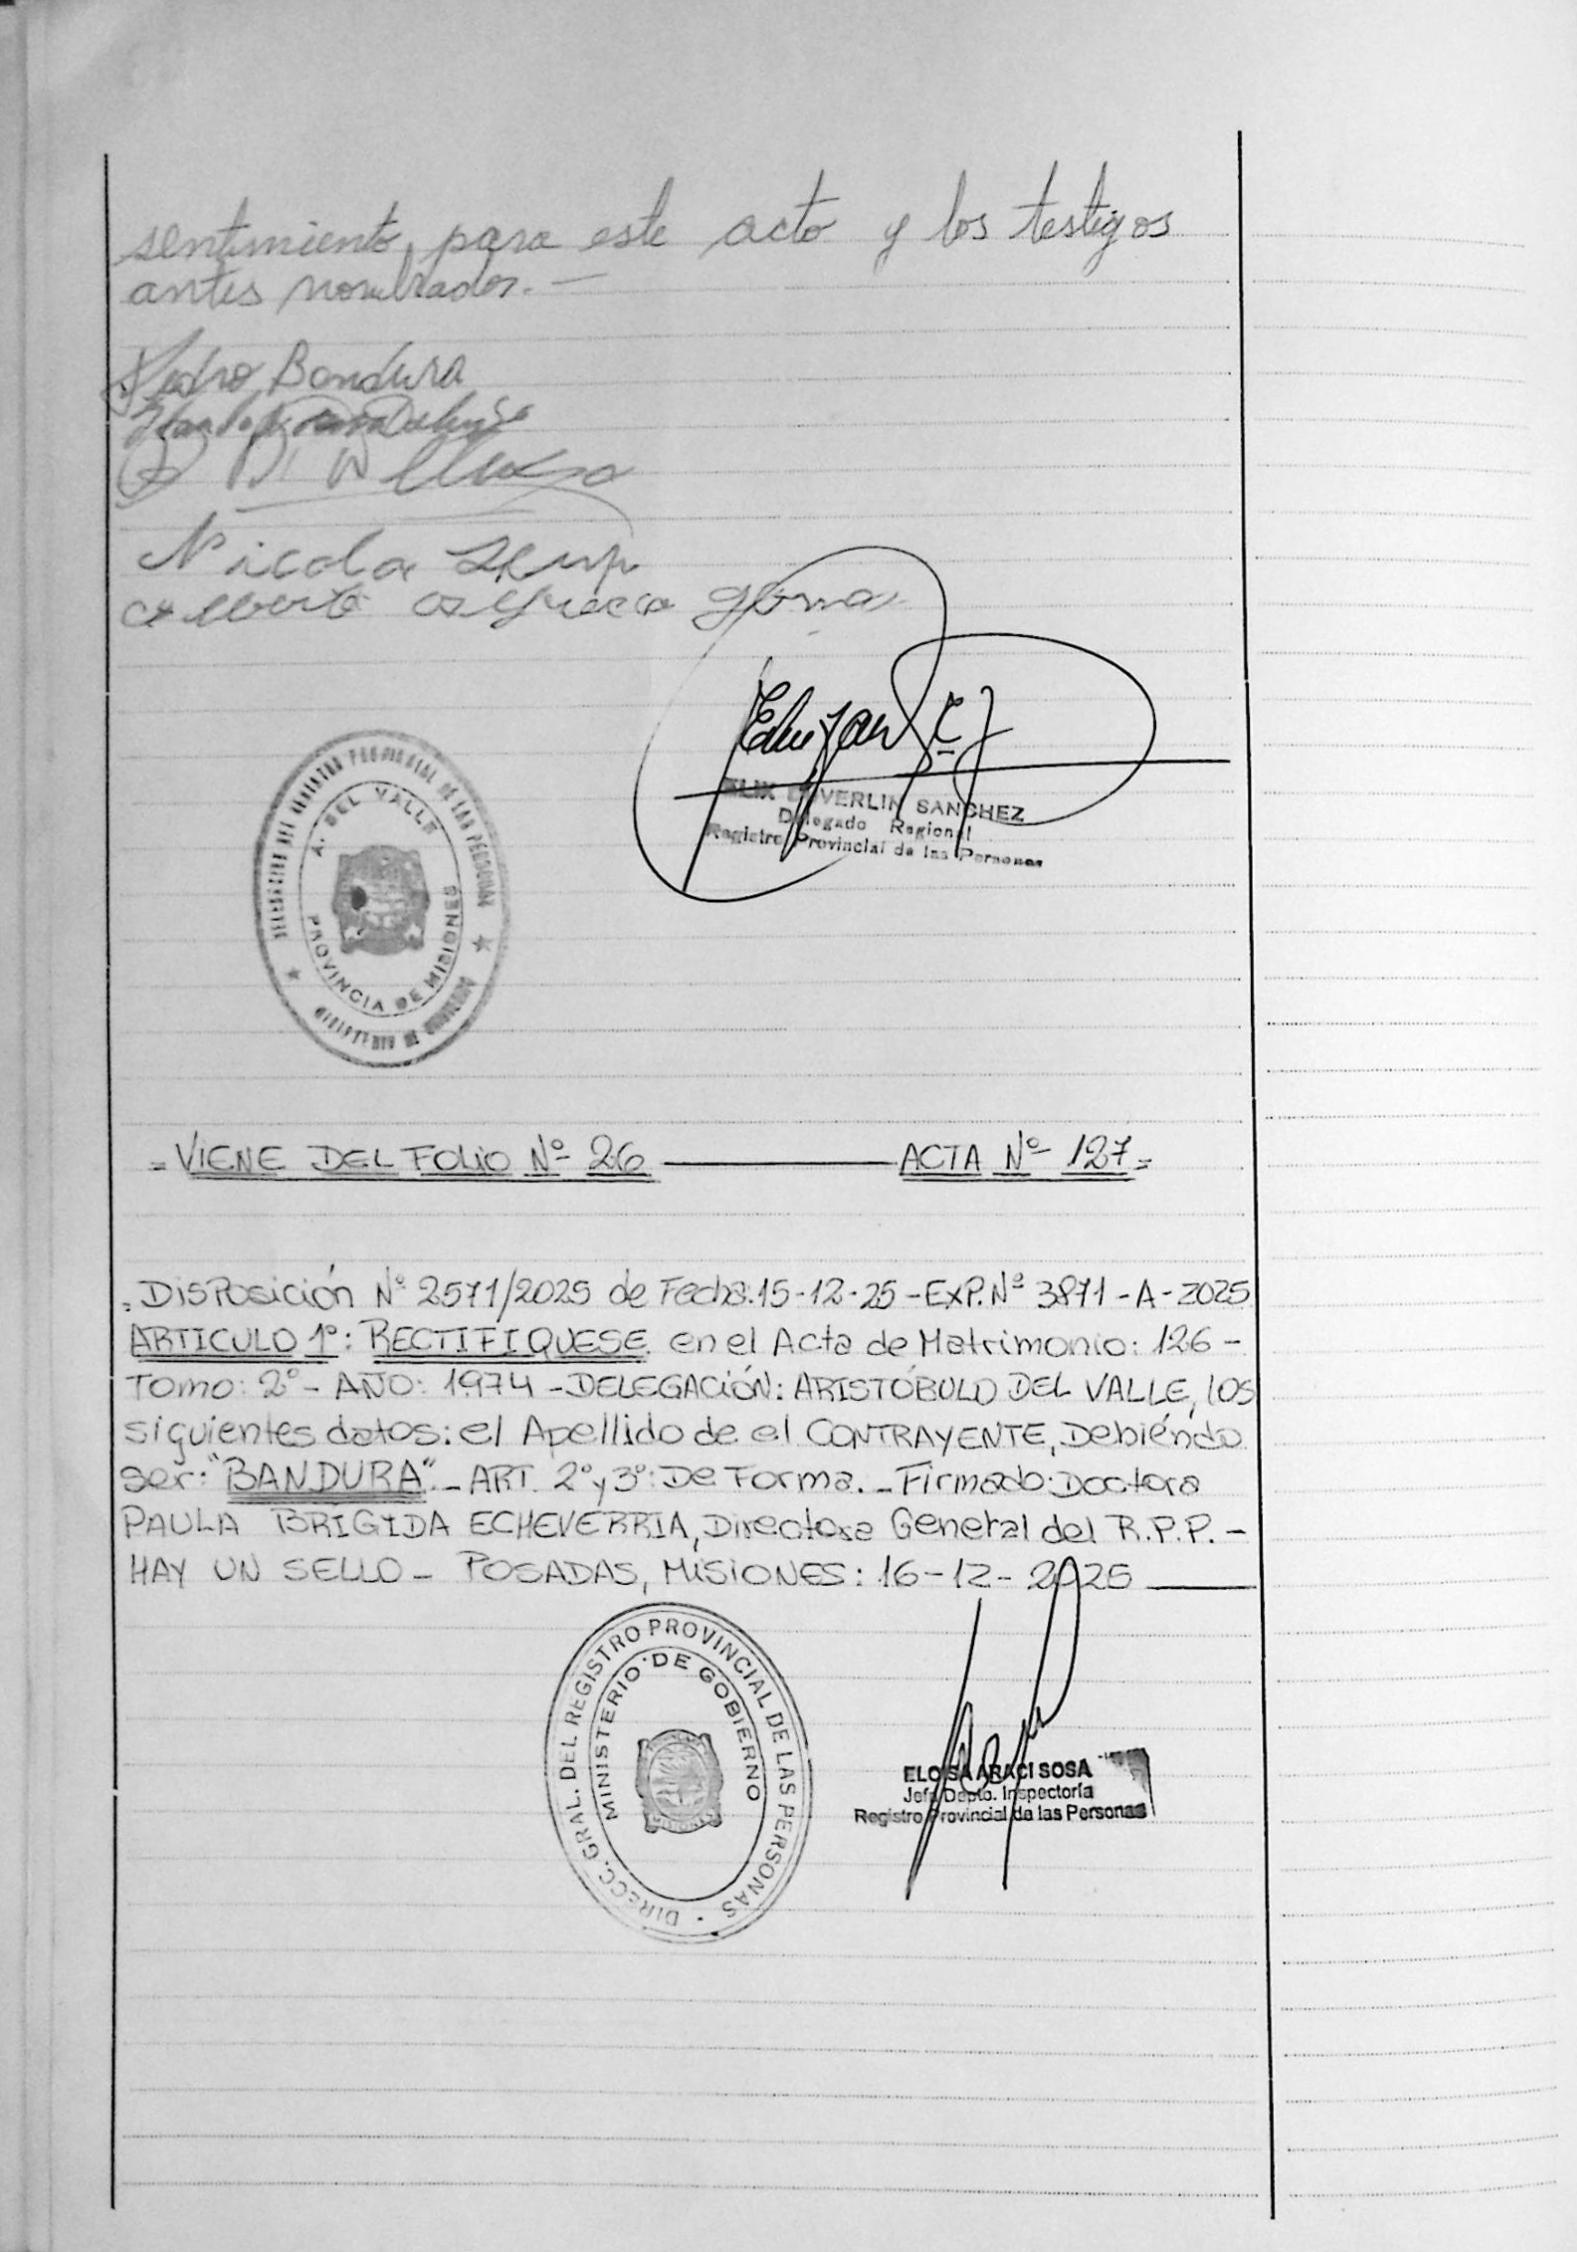 sentimiento para este acto y los testigos
antes nombrados.—
Pedro Bandura
Nicola
Alberto
DELEGACION DEL REGISTRO PROVINCIAL DE LAS PERSONAS
A. DEL VALLE
PROVINCIA DE MISIONES
MINISTERIO DE GOBIERNO
SANCHEZ
Delegado Regional
Registro Provincial de las Personas
= VIENE DEL FOLIO Nº 26 ——— ACTA Nº 127 =
. DisPosición Nº 2571/2025 de Fecha: 15-12-25 - ExP. Nº 3871 - A - 2025
ARTICULO 1º: RECTIFIQUESE en el Acta de Matrimonio: 126 -
Tomo: 2º - AÑO: 1974 - DELEGACIÓN: ARISTÓBULO DEL VALLE, los
siguientes datos: el Apellido de el CONTRAYENTE, Debiéndo
ser: "BANDURA". - ART. 2º y 3º: De Forma. - Firmado: Doctora
PAULA BRIGIDA ECHEVERRIA, Directora General del R.P.P. -
HAY UN SELLO - POSADAS, MISIONES: 16-12-2025 ———
DIRECC. GRAL. DEL REGISTRO PROVINCIAL DE LAS PERSONAS
MINISTERIO DE GOBIERNO
ELOISA ARACI SOSA
Jefa Depto. Inspectoría
Registro Provincial de las Personas